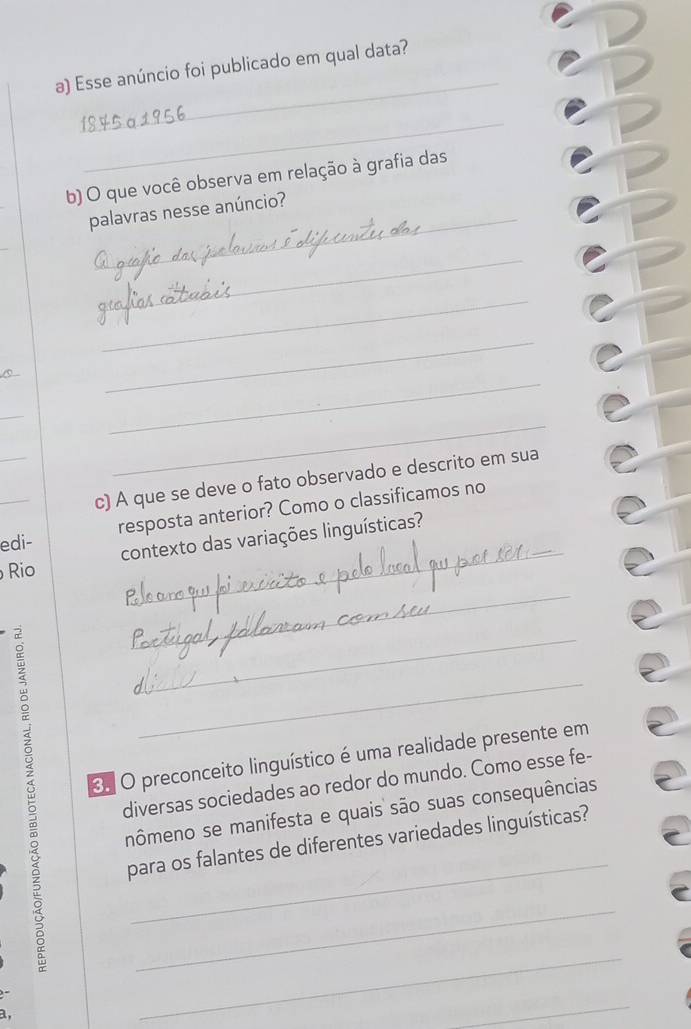 a) Esse anúncio foi publicado em qual data?
1845 a 1956
b) O que você observa em relação à grafia das
palavras nesse anúncio?
A grafia das palavras é diferentes das
grafias
c) A que se deve o fato observado e descrito em sua
resposta anterior? Como o classificamos no
contexto das variações linguísticas?
Pelo ano que foi escrito e pelo local qu por ser
Portugal, falavam com seu
3. O preconceito linguístico é uma realidade presente em
diversas sociedades ao redor do mundo. Como esse fe-
nômeno se manifesta e quais são suas consequências
para os falantes de diferentes variedades linguísticas?
edi-
Rio
REPRODUÇÃO/FUNDAÇÃO BIBLIOTECA NACIONAL, RIO DE JANEIRO, RJ.
e-
a,